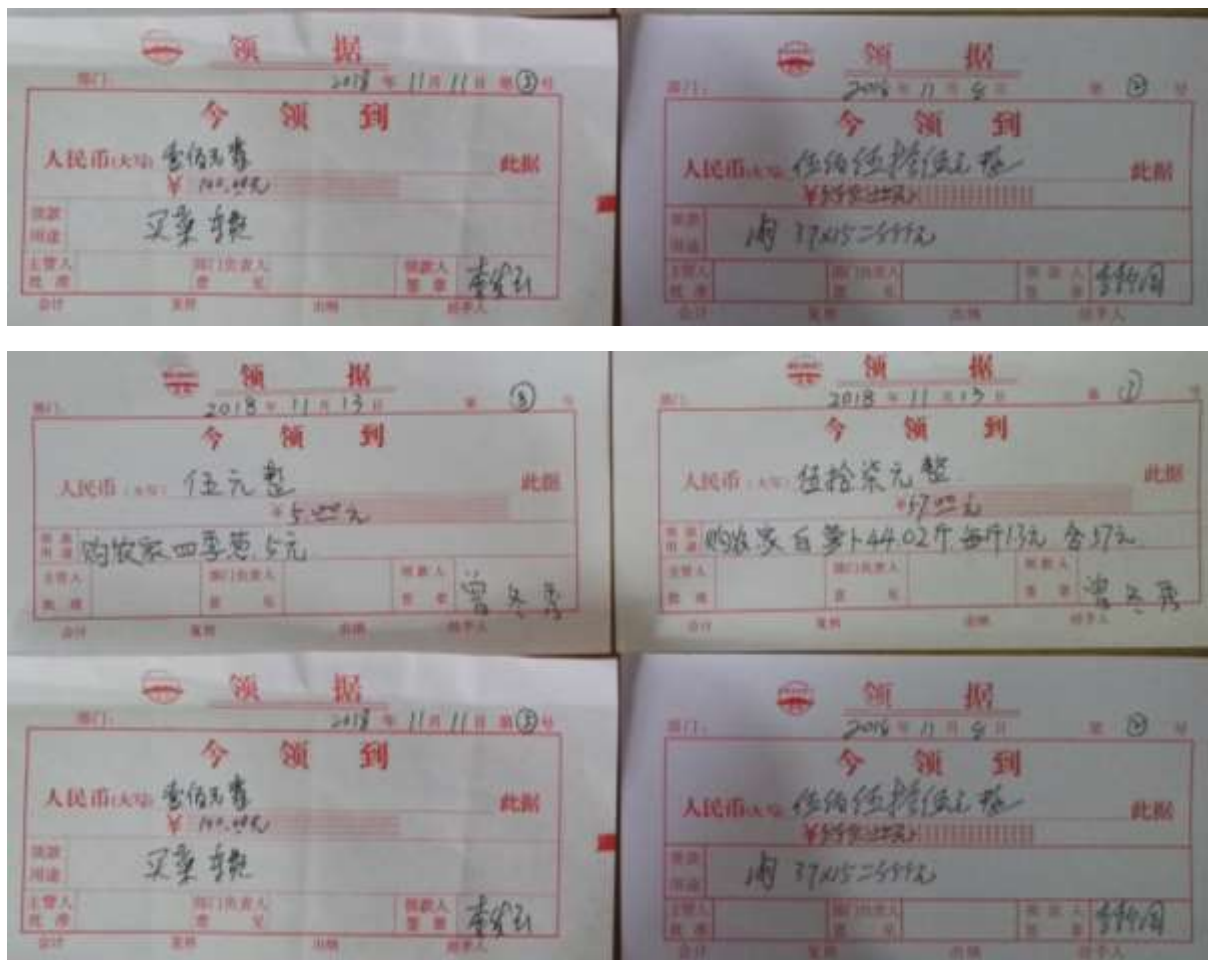 领 据
部门： 2018 年 11 月 11 日 第 ③ 号
今 领 到
人民币(大写) 壹佰元整 此据
￥ 100.00元
领款用途 买菜
主管人批准 部门负责人意见 领款人签章 李
会计 复核 出纳 经手人
领 据
部门： 2018 年 11 月 8 日 第 ② 号
今 领 到
人民币(大写) 伍佰伍拾伍元整 此据
￥555元
领款用途 肉 37x15=555元
主管人批准 部门负责人意见 领款人签章
会计 复核 出纳 经手人
领 据
部门： 2018 年 11 月 13 日 第 ⑧ 号
今 领 到
人民币(大写) 伍元整 此据
￥5.00元
领款用途 购农家四季葱.5元
主管人批准 部门负责人意见 领款人签章 曾冬秀
会计 复核 出纳 经手人
领 据
部门： 2018 年 11 月 13 日 第 号
今 领 到
人民币(大写) 伍拾柒元整 此据
￥57.00元
领款用途 购农家白萝卜44.02斤 每斤1.3元 合57元
主管人批准 部门负责人意见 领款人签章 曾冬秀
会计 复核 出纳 经手人
领 据
部门： 2018 年 11 月 11 日 第 ③ 号
今 领 到
人民币(大写) 壹佰元整 此据
￥ 100.00元
领款用途 买菜
主管人批准 部门负责人意见 领款人签章 李
会计 复核 出纳 经手人
领 据
部门： 2018 年 11 月 8 日 第 ② 号
今 领 到
人民币(大写) 伍佰伍拾伍元整 此据
￥555元
领款用途 肉 37x15=555元
主管人批准 部门负责人意见 领款人签章
会计 复核 出纳 经手人